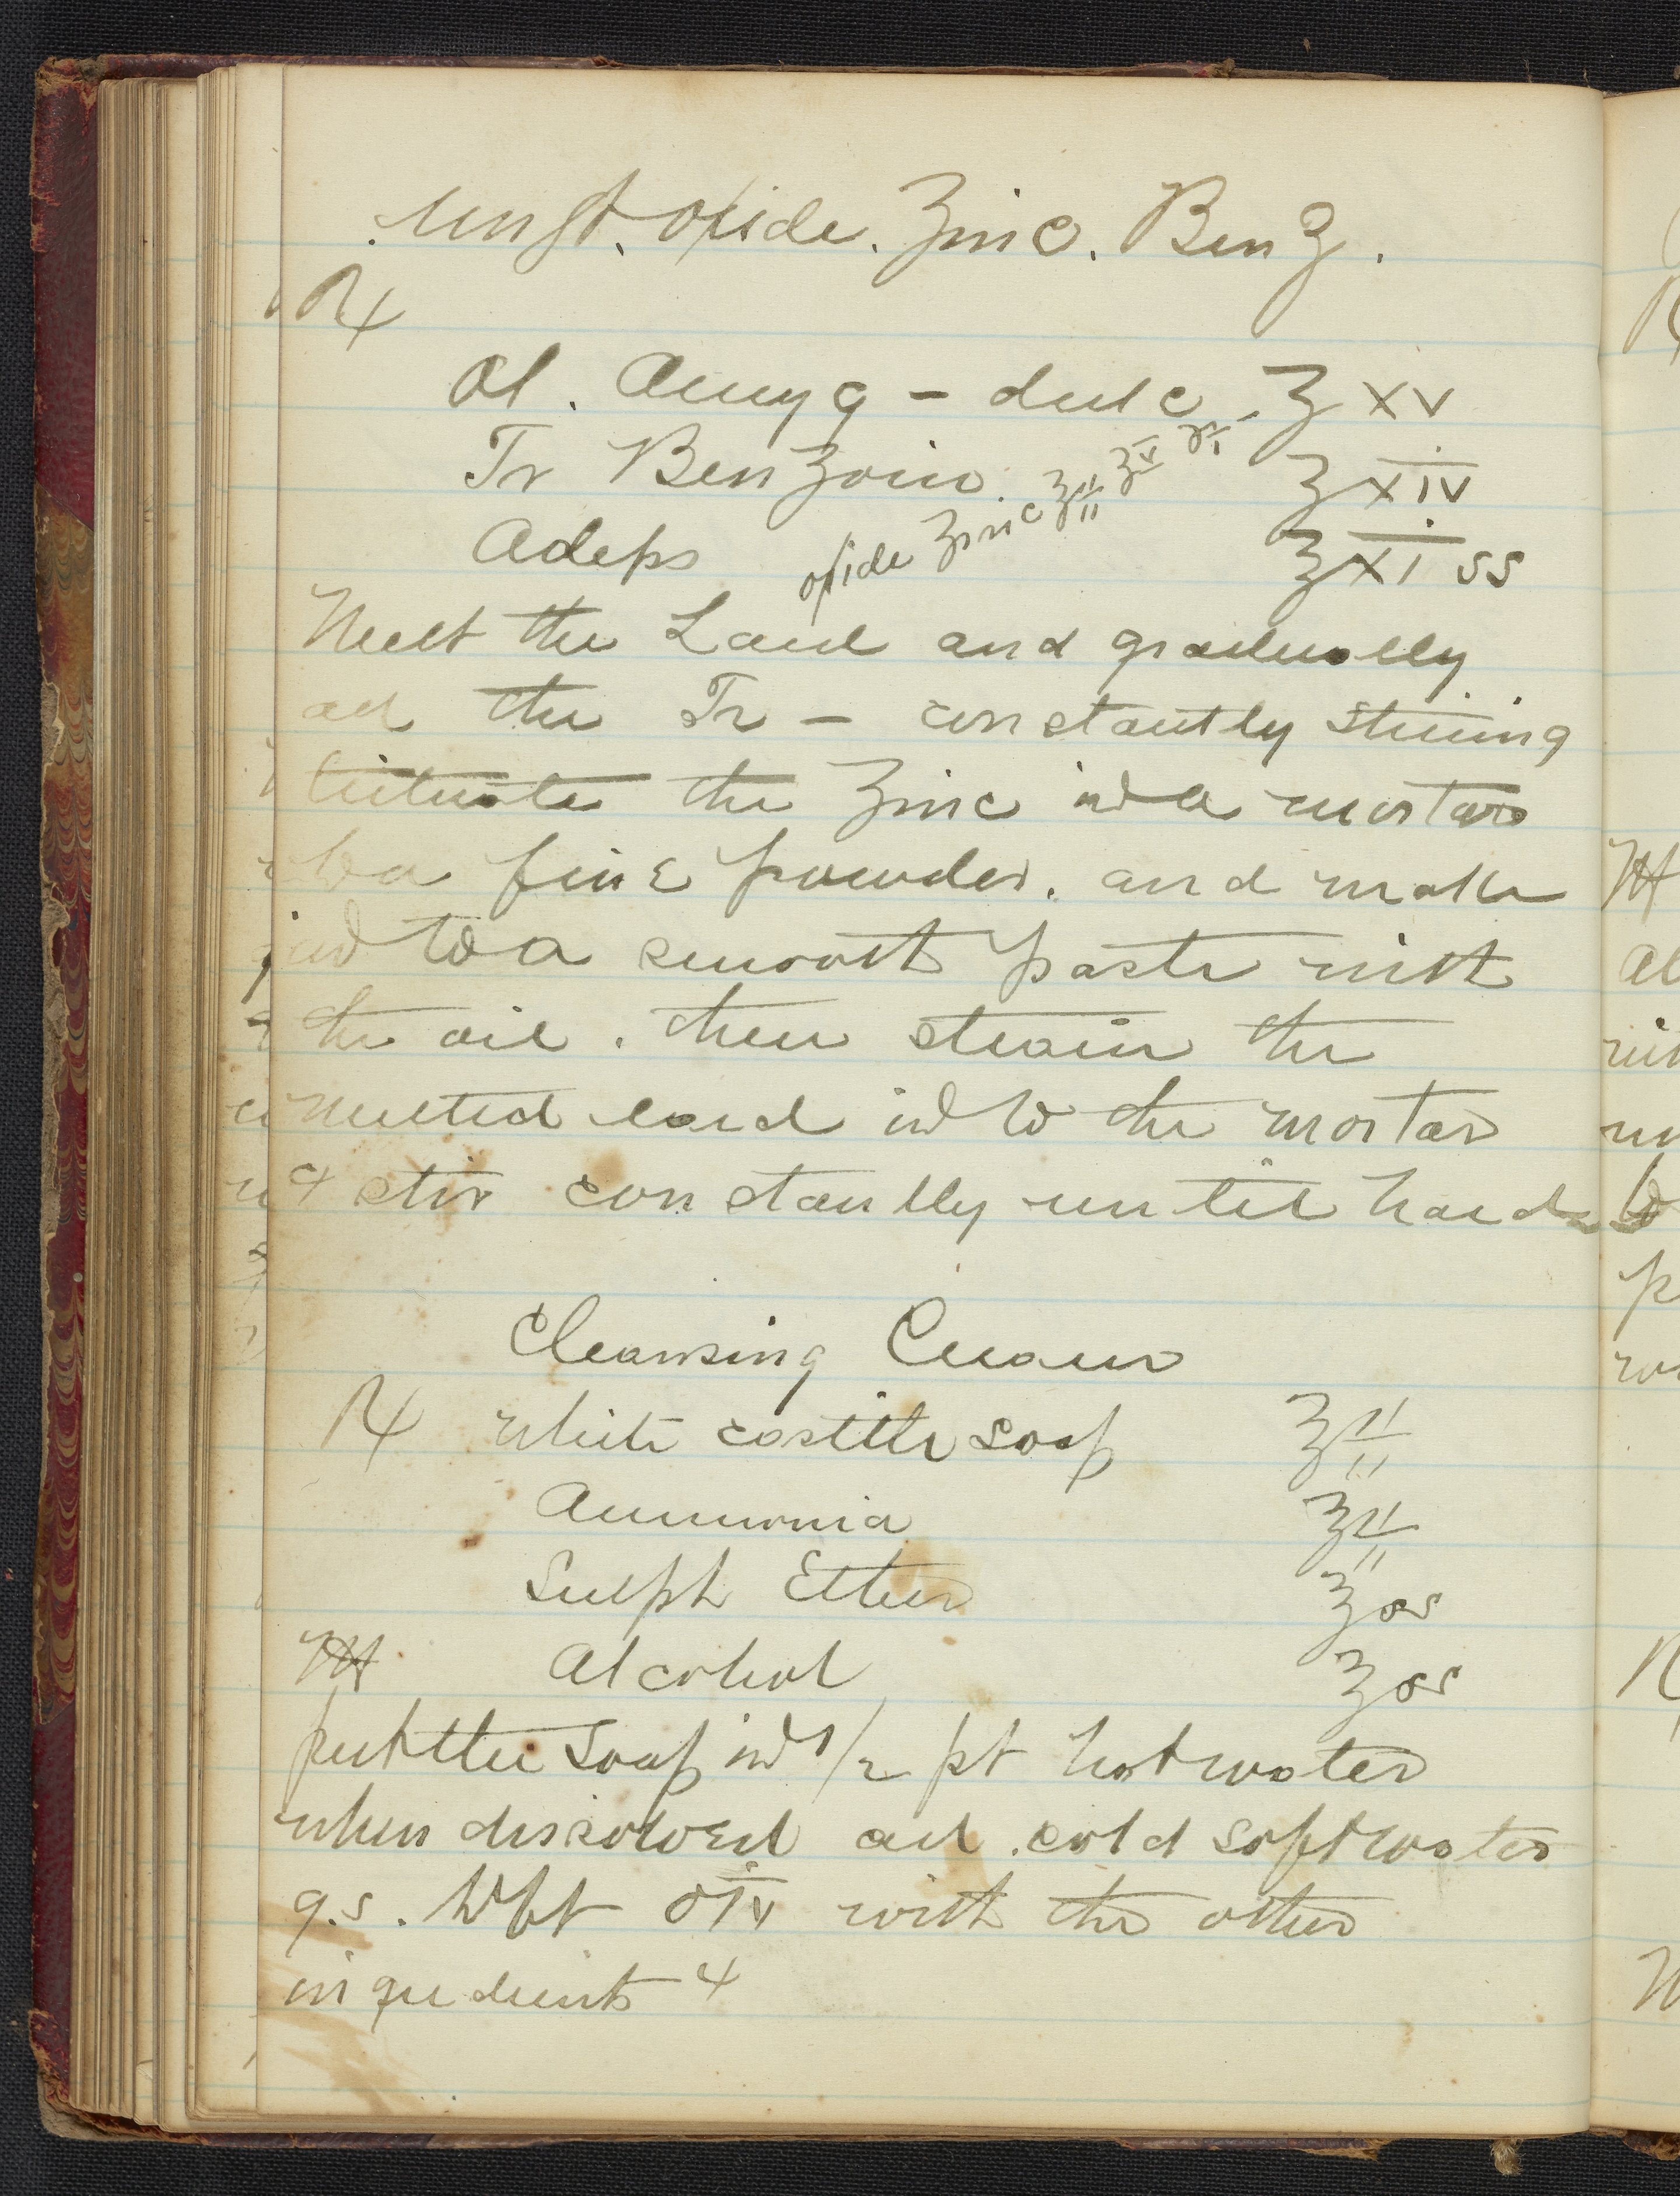 Ungt. Oxide. Zinc. Benz.
℞
Ol. Amyg - dulc - ʒ xv
Tr Benzoin. ʒ xiv
oxide Zinc ℥ii ʒv ℈i
Adeps ℥ xi ss
Melt the Lard and gradually
ad the Tr - constantly stirring
triturate the Zinc in a mortar
to a fine powder. and make
in to a smooth paste with
the oil. then strain the
melted lard in to the mortar
& stir constantly until hard
Cleansing Cream
℞ white castile soap ℥ii
Ammonia ℥ii
Sulph Ether ℥ss
M Alcohol ℥ss
put the soap in 1/2 pt hot water
when dissolved ad cold soft water
q.s. to ft Oiv with the other
ingredients